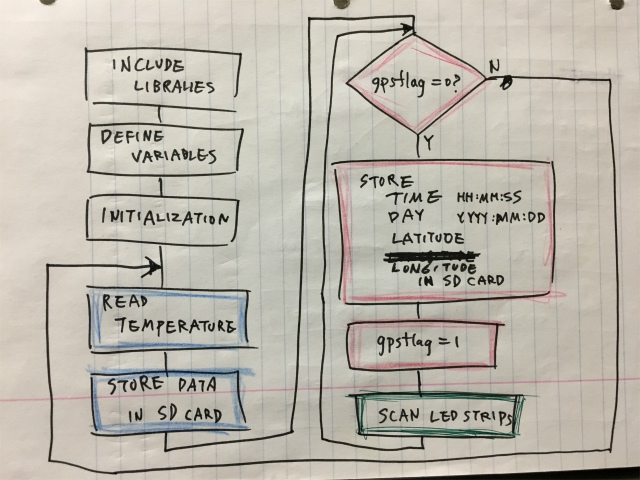 INCLUDE
LIBRARIES
DEFINE
VARIABLES
INITIALIZATION
READ
TEMPERATURE
STORE DATA
IN SD CARD
gpsflag = 0?
N
Y
STORE
TIME HH:MM:SS
DAY YYYY:MM:DD
LATITUDE
LONGITUDE
IN SD CARD
gpsflag = 1
SCAN LED STRIPS